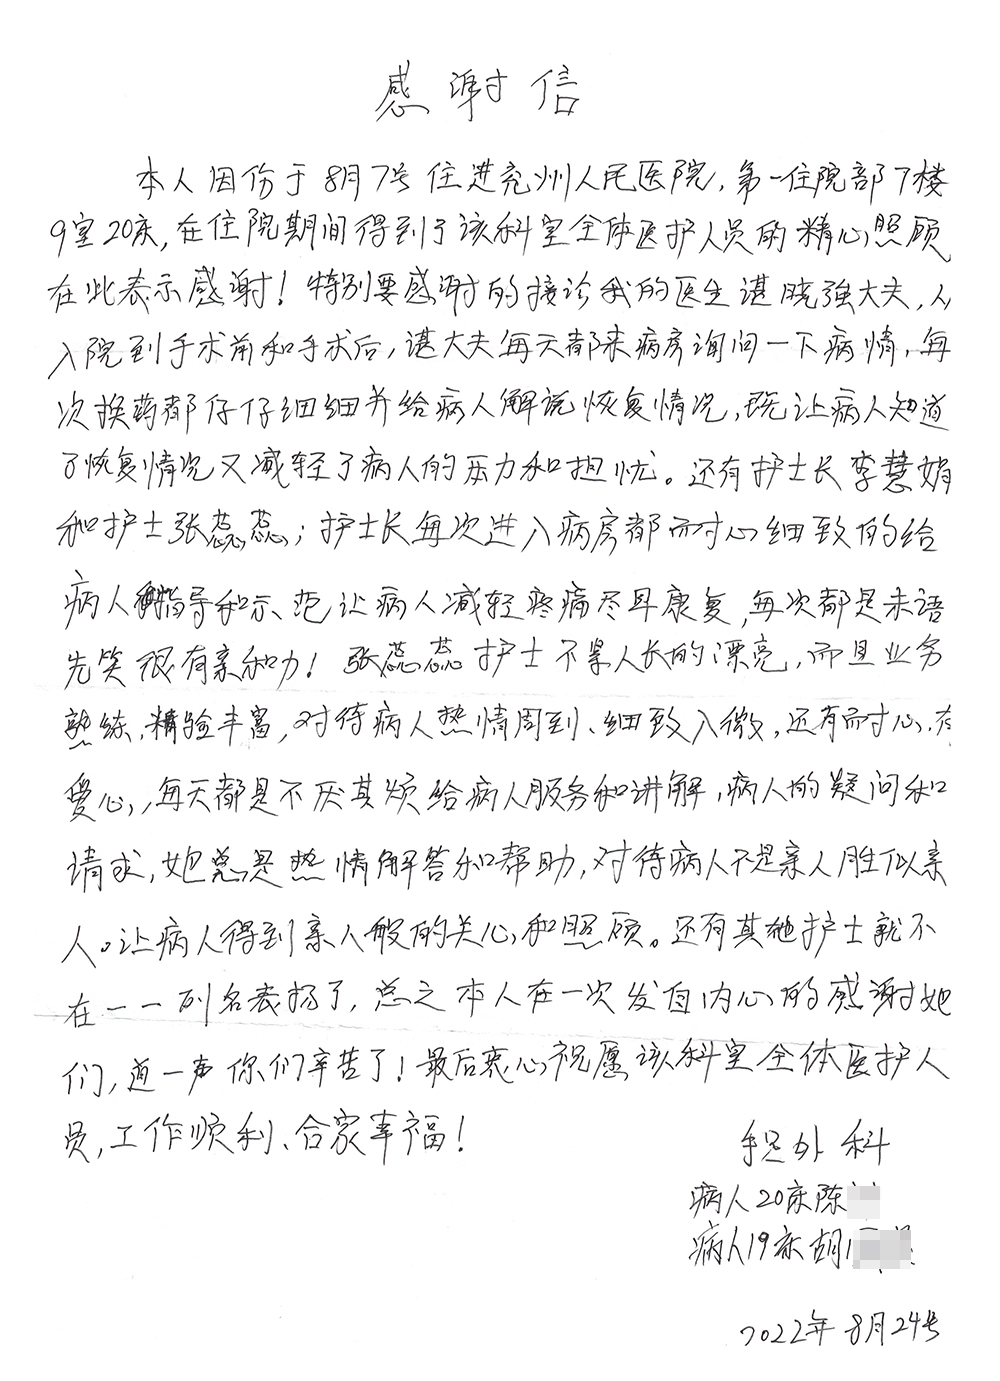 感谢信
本人因伤于8月7号住进兖州人民医院，第一住院部7楼
9室20床，在住院期间得到了该科室全体医护人员的精心照顾
在此表示感谢！特别要感谢的接诊我的医生谌晓强大夫，从
入院到手术前和手术后，谌大夫每天都来病房询问一下病情，每
次换药都仔仔细细并给病人解说恢复情况，既让病人知道
了恢复情况又减轻了病人的压力和担忧。还有护士长李慧娟
和护士张蕊蕊；护士长每次进入病房都耐心细致的给
病人指导和示范让病人减轻疼痛尽早康复，每次都是未语
先笑很有亲和力！张蕊蕊护士不拿人长的漂亮，而且业务
熟练，精验丰富，对待病人热情周到、细致入微，还有耐心，有
爱心，每天都是不厌其烦给病人服务和讲解，病人的疑问和
请求，她总是热情解答和帮助，对待病人不是亲人胜似亲
人。让病人得到亲人般的关心和照顾。还有其她护士就不
在一一列名表扬了，总之本人在一次发自内心的感谢她
们，道一声你们辛苦了！最后衷心祝愿该科室全体医护人
员，工作顺利、合家幸福！
手足外科
病人20床陈
病人19床胡
2022年8月24号